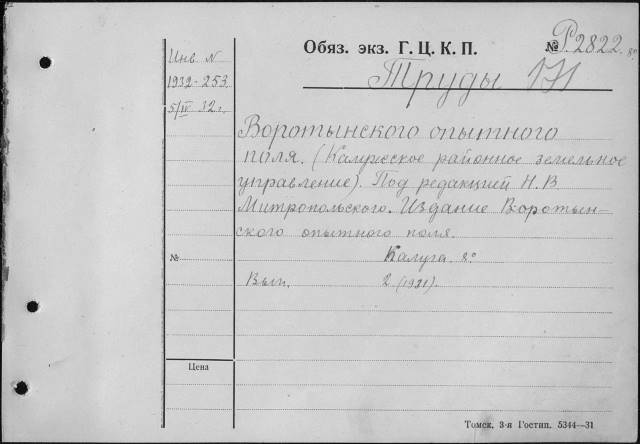 Инв N
1932-253
5/IV 32 г.
Обяз. экз. Г. Ц. К. П.
№ Р.2822 8°
Труды 171
Воротынского опытного
поля. (Калужское районное земельное
управление). Под редакцией Н. В.
Митропольского. Издание Воротын-
ского опытного поля.
№
Калуга 8°
Вып. 2 (1921).
Цена
Томск, 3-я Гостип. 5344—31